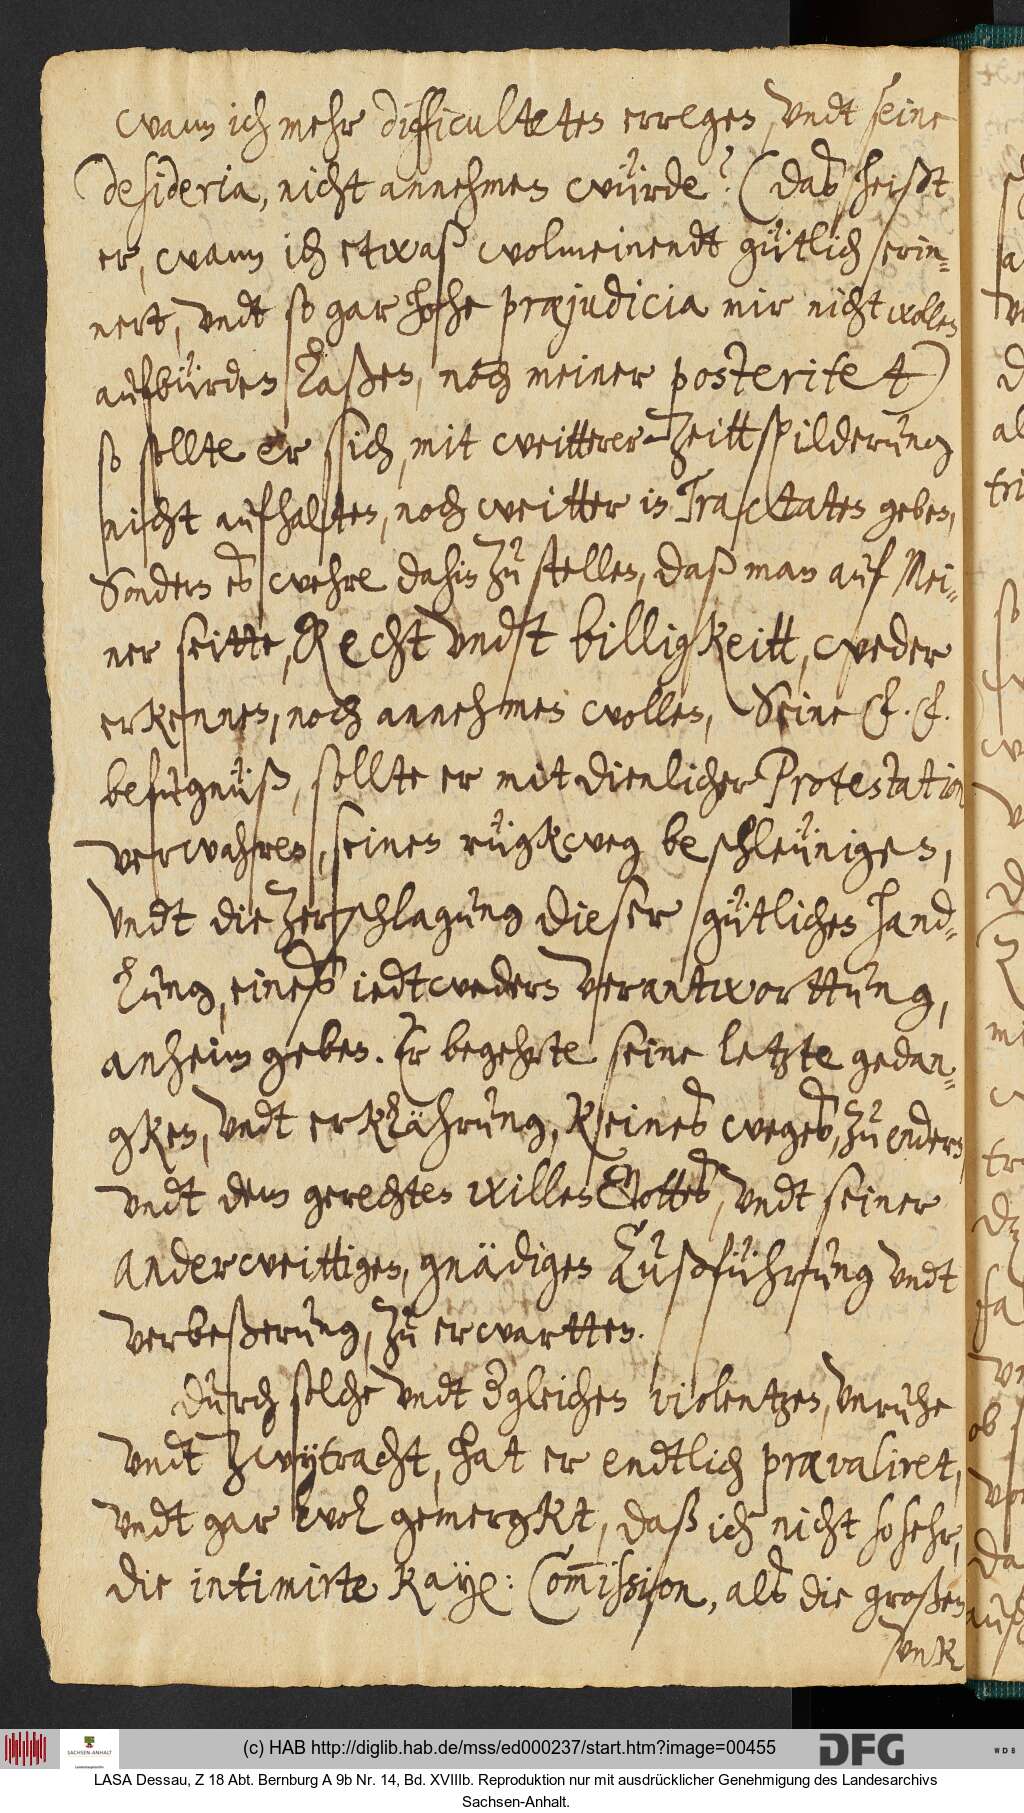 wann ich mehr difficulteten erregen, vndt seine
desideria, nicht annehmen würde? (das heißt
er, wann ich etwaß wolmeinendt gütlich erin-
nert, vndt so gar hohe præjudicia mir nicht wollen
aufbürden laßen, noch meiner posteritet)
so sollte er sich, mit weitterer Zeittspilderung
nicht aufhalten, noch weitter in Tractaten geben,
Sondern es wehre dahin zu stellen, daß man auf Mei-
ner seitte, Recht vndt billigkeitt, weder
erkennen, noch annehmen wollen, Seine E. E.
befugnüß, sollte er mit dienlicher Protestation
verwahren, seinen rügkweg beschleunigen,
vndt die Zerschlagung dieser gütlichen hand-
lung, eineß iedtweders verantworttung,
anheim geben. Er begehrte seine letzte gedan-
gken, vndt erklährung, Keines weges, zu endern,
vndt dem gerechten willen Gottes, vndt seiner
anderweittigen, gnädigen Außführung vndt
verbeßerung, zu erwartten.
Durch solche vndt dergleichen violentzen, vnruhe
vndt zwytracht, hat er endtlich prævaliret,
vndt gar wol gemergkt, daß ich nicht so sehr,
die intimirte Kayl: Commission, als die großen
vnk
(c) HAB http://diglib.hab.de/mss/ed000237/start.htm?image=00455
SACHSEN-ANHALT
DFG
WDB
LASA Dessau, Z 18 Abt. Bernburg A 9b Nr. 14, Bd. XVIIIb. Reproduktion nur mit ausdrücklicher Genehmigung des Landesarchivs
Sachsen-Anhalt.